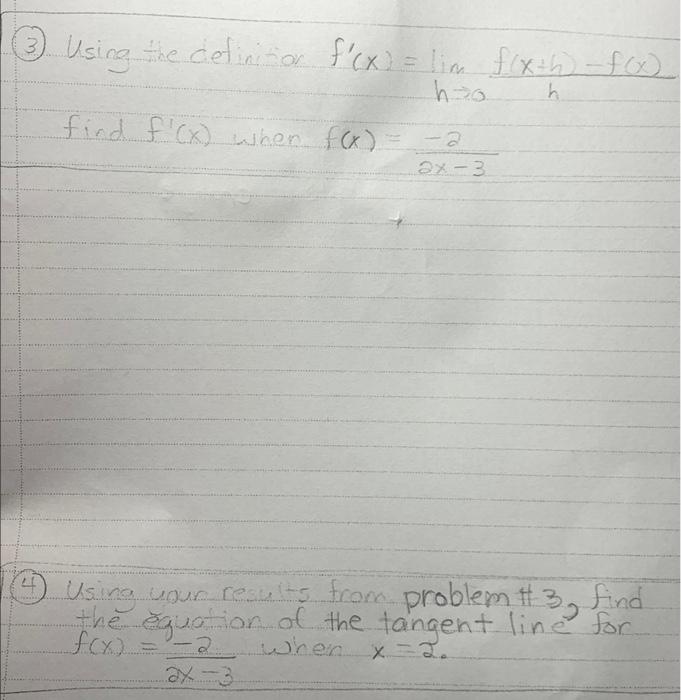 ③ Using the definition f'(x) = lim f(x+h) - f(x)
h→0 h
find f'(x) when f(x) = -2
2x-3
④ Using your results from problem #3, find
the equation of the tangent line for
f(x) = -2 when x=2.
2x-3